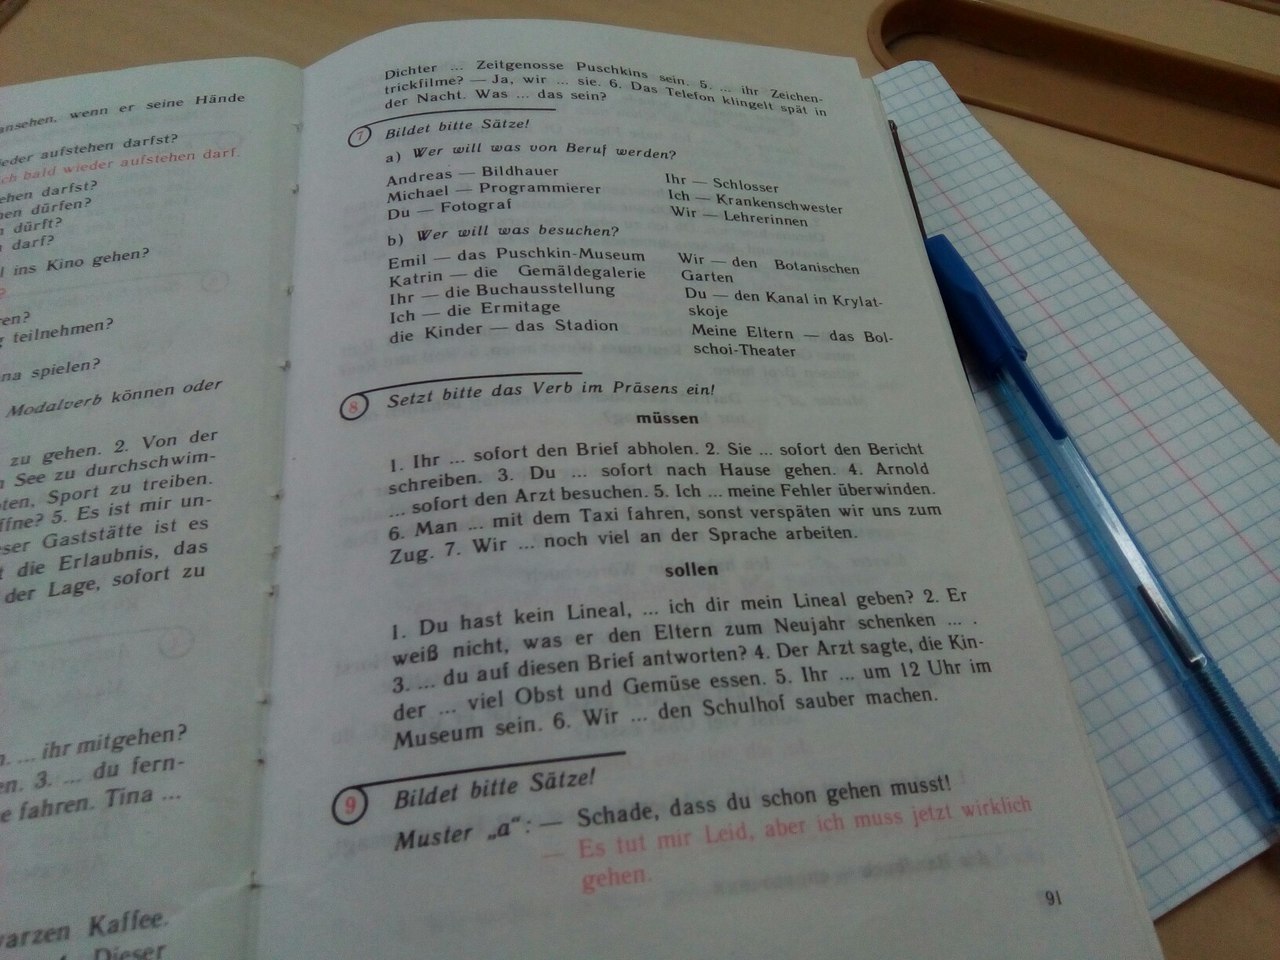 ansehen, wenn er seine Hände
wieder aufstehen darfst?
ich bald wieder aufstehen darf.
ehen darfst?
hen dürfen?
n dürft?
n darf?
l ins Kino gehen?
ren?
g teilnehmen?
na spielen?
Modalverb können oder
zu gehen. 2. Von der
n See zu durchschwim-
oten, Sport zu treiben.
ffne? 5. Es ist mir un-
eser Gaststätte ist es
t die Erlaubnis, das
der Lage, sofort zu
n. ... ihr mitgehen?
en. 3. ... du fern-
e fahren. Tina ...
warzen Kaffee.
Dieser
Dichter ... Zeitgenosse Puschkins sein. 5. ... ihr Zeichen-
trickfilme? — Ja, wir ... sie. 6. Das Telefon klingelt spät in
der Nacht. Was ... das sein?
7 Bildet bitte Sätze!
a) Wer will was von Beruf werden?
Andreas — Bildhauer
Michael — Programmierer
Du — Fotograf
Ihr — Schlosser
Ich — Krankenschwester
Wir — Lehrerinnen
b) Wer will was besuchen?
Emil — das Puschkin-Museum
Katrin — die Gemäldegalerie
Ihr — die Buchausstellung
Ich — die Ermitage
die Kinder — das Stadion
Wir — den Botanischen
Garten
Du — den Kanal in Krylat-
skoje
Meine Eltern — das Bol-
schoi-Theater
8 Setzt bitte das Verb im Präsens ein!
müssen
1. Ihr ... sofort den Brief abholen. 2. Sie ... sofort den Bericht
schreiben. 3. Du ... sofort nach Hause gehen. 4. Arnold
... sofort den Arzt besuchen. 5. Ich ... meine Fehler überwinden.
6. Man ... mit dem Taxi fahren, sonst verspäten wir uns zum
Zug. 7. Wir ... noch viel an der Sprache arbeiten.
sollen
1. Du hast kein Lineal, ... ich dir mein Lineal geben? 2. Er
weiß nicht, was er den Eltern zum Neujahr schenken ... .
3. ... du auf diesen Brief antworten? 4. Der Arzt sagte, die Kin-
der ... viel Obst und Gemüse essen. 5. Ihr ... um 12 Uhr im
Museum sein. 6. Wir ... den Schulhof sauber machen.
9 Bildet bitte Sätze!
Muster „a“: — Schade, dass du schon gehen musst!
— Es tut mir Leid, aber ich muss jetzt wirklich
gehen.
91